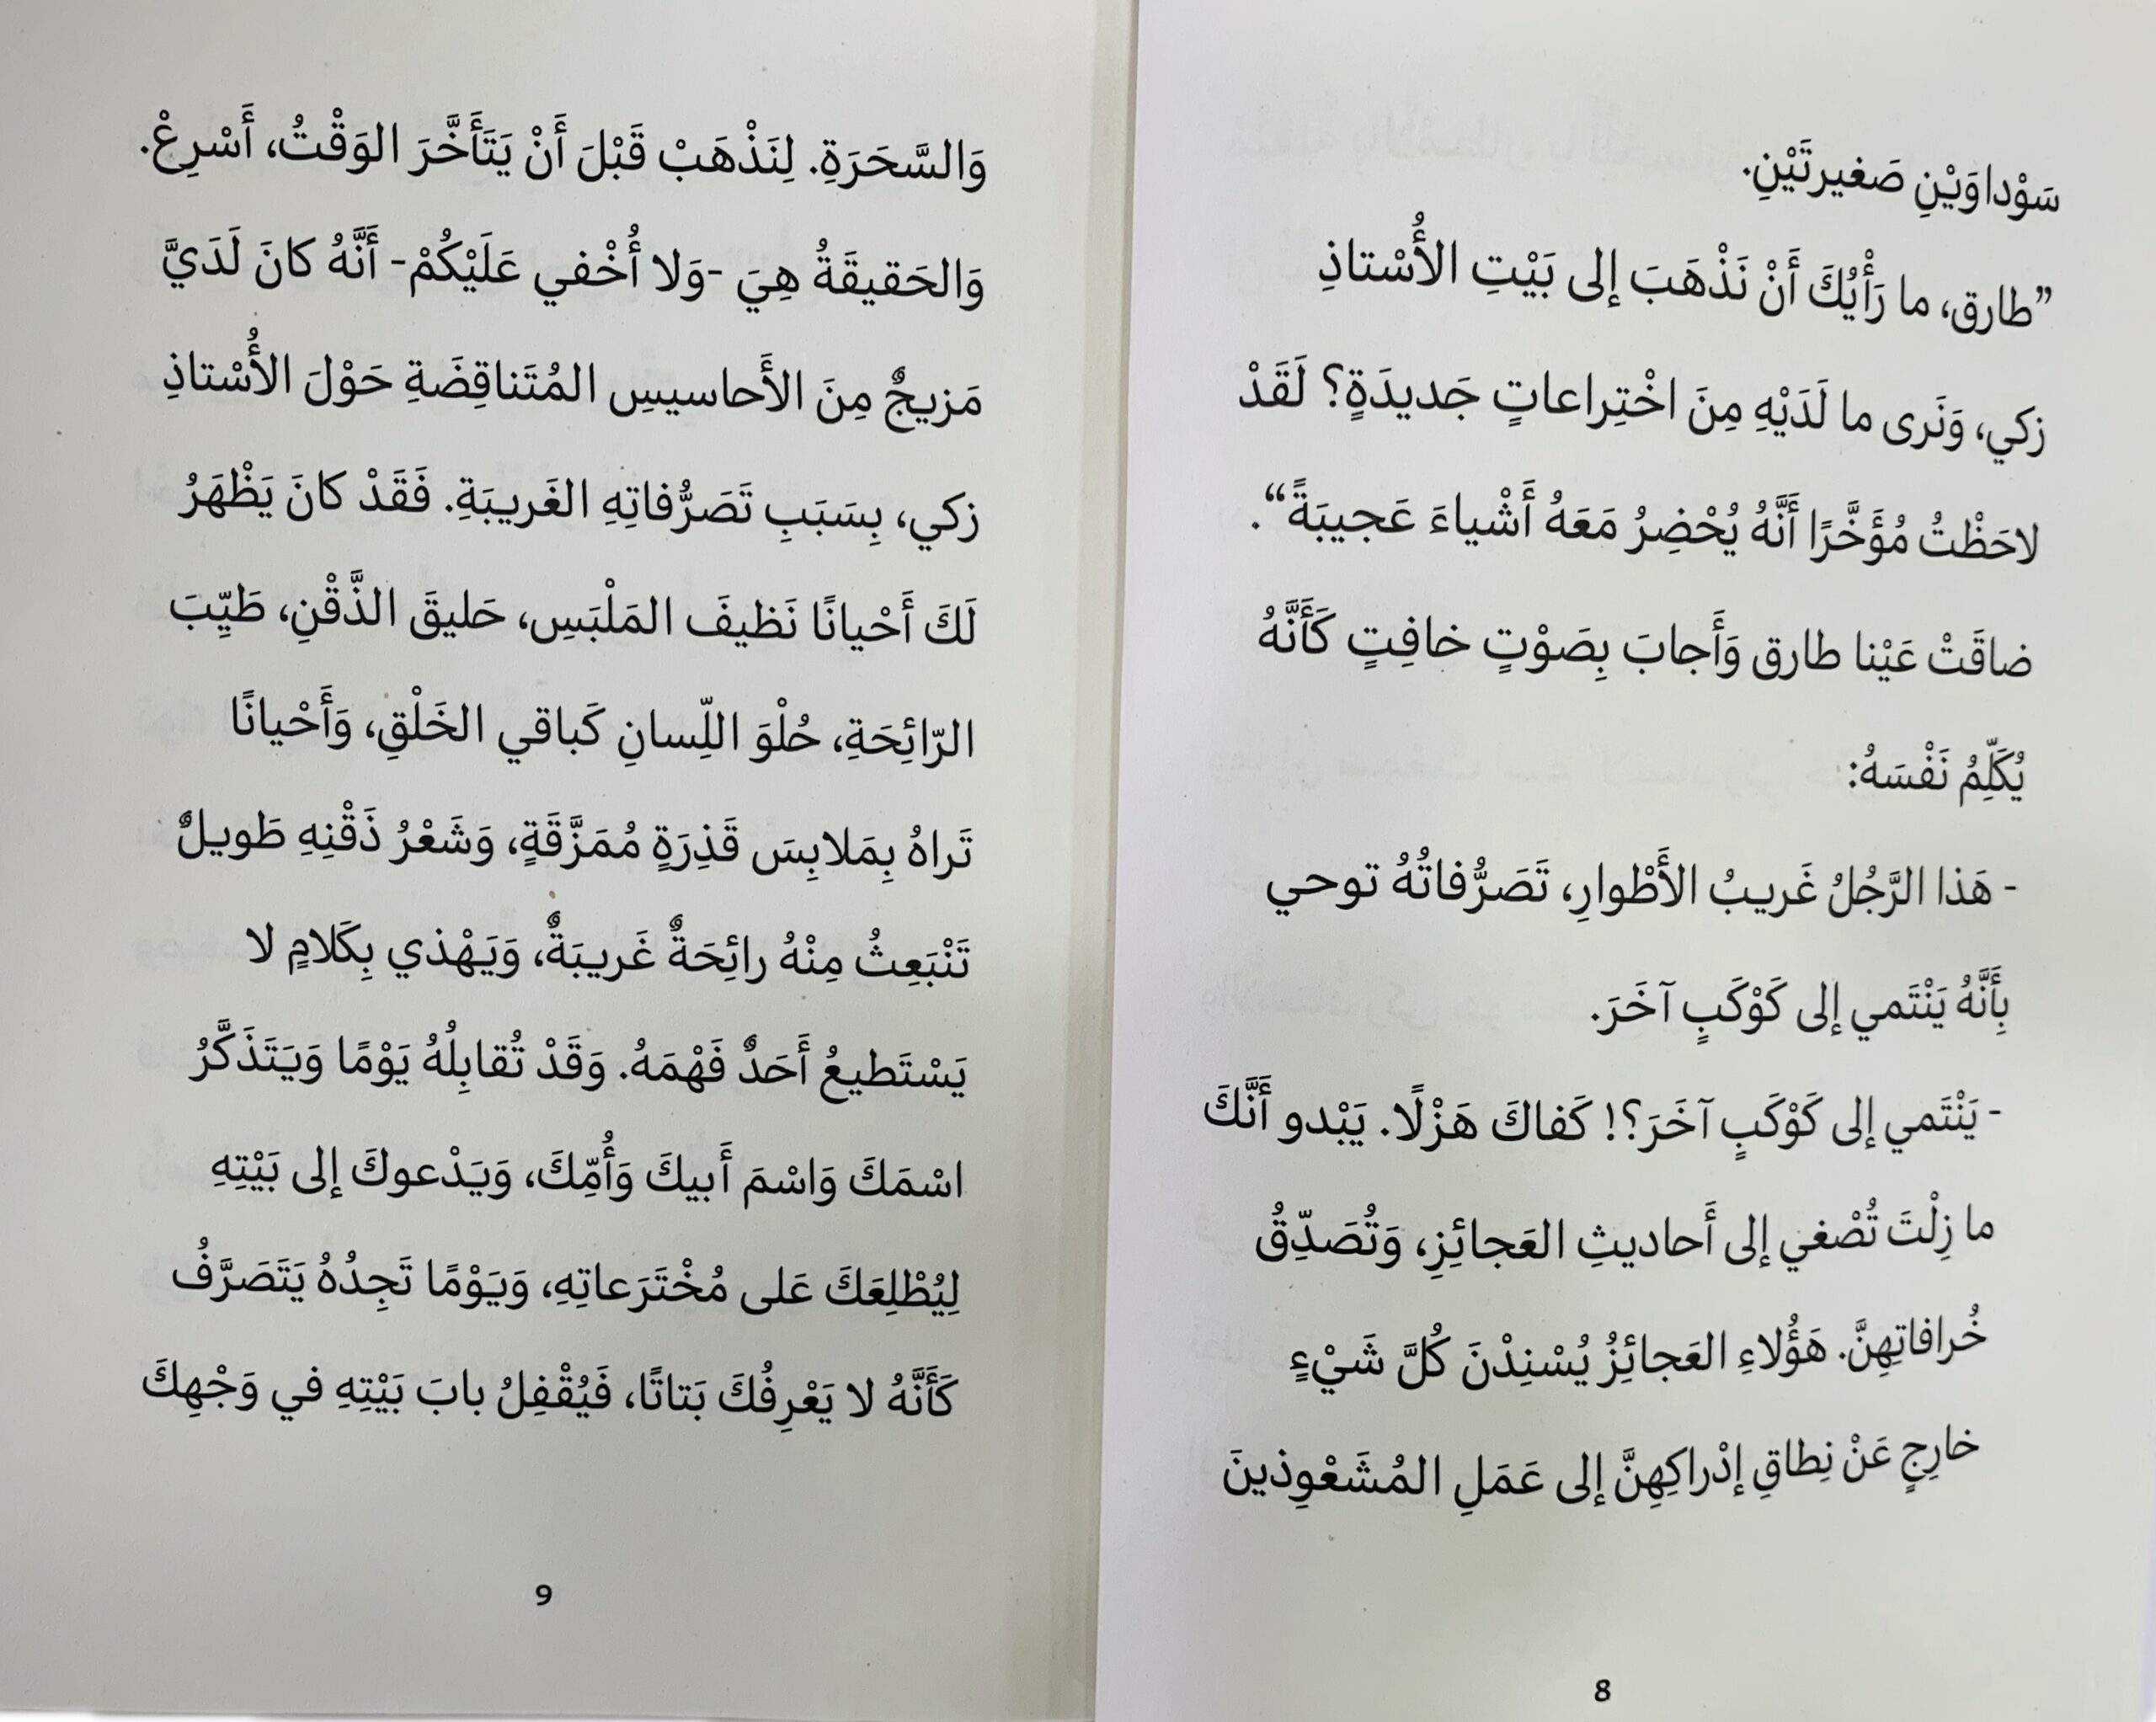 سَوْداوَيْنِ صَغيرتَيْنِ.
”طارق، ما رَأْيُكَ أَنْ نَذْهَبَ إلى بَيْتِ الأُسْتاذِ
زكي، وَنَرى ما لَدَيْهِ مِنَ اخْتِراعاتٍ جَديدَةٍ؟ لَقَدْ
لاحَظْتُ مُؤَخَّرًا أَنَّهُ يُحْضِرُ مَعَهُ أَشْياءَ عَجيبَةً“.
ضاقَتْ عَيْنا طارق وَأَجابَ بِصَوْتٍ خافِتٍ كَأَنَّهُ
يُكَلِّمُ نَفْسَهُ:
- هَذا الرَّجُلُ غَريبُ الأَطْوارِ، تَصَرُّفاتُهُ توحي
بِأَنَّهُ يَنْتَمي إلى كَوْكَبٍ آخَرَ.
- يَنْتَمي إلى كَوْكَبٍ آخَرَ؟! كَفاكَ هَزْلًا. يَبْدو أَنَّكَ
ما زِلْتَ تُصْغي إلى أَحاديثِ العَجائِزِ، وَتُصَدِّقُ
خُرافاتِهِنَّ. هَؤُلاءِ العَجائِزُ يُسْنِدْنَ كُلَّ شَيْءٍ
خارِجٍ عَنْ نِطاقِ إدْراكِهِنَّ إلى عَمَلِ المُشَعْوِذينَ
8
وَالسَّحَرَةِ. لِنَذْهَبْ قَبْلَ أَنْ يَتَأَخَّرَ الوَقْتُ، أَسْرِعْ.
وَالحَقيقَةُ هِيَ -وَلا أُخْفي عَلَيْكُمْ- أَنَّهُ كانَ لَدَيَّ
مَزيجٌ مِنَ الأَحاسيسِ المُتَناقِضَةِ حَوْلَ الأُسْتاذِ
زكي، بِسَبَبِ تَصَرُّفاتِهِ الغَريبَةِ. فَقَدْ كانَ يَظْهَرُ
لَكَ أَحْيانًا نَظيفَ المَلْبَسِ، حَليقَ الذَّقْنِ، طَيِّبَ
الرّائِحَةِ، حُلْوَ اللِّسانِ كَباقي الخَلْقِ، وَأَحْيانًا
تَراهُ بِمَلابِسَ قَذِرَةٍ مُمَزَّقَةٍ، وَشَعْرُ ذَقْنِهِ طَويلٌ
تَنْبَعِثُ مِنْهُ رائِحَةٌ غَريبَةٌ، وَيَهْذي بِكَلامٍ لا
يَسْتَطيعُ أَحَدٌ فَهْمَهُ. وَقَدْ تُقابِلُهُ يَوْمًا وَيَتَذَكَّرُ
اسْمَكَ وَاسْمَ أَبيكَ وَأُمِّكَ، وَيَدْعوكَ إلى بَيْتِهِ
لِيُطْلِعَكَ عَلى مُخْتَرَعاتِهِ، وَيَوْمًا تَجِدُهُ يَتَصَرَّفُ
كَأَنَّهُ لا يَعْرِفُكَ بَتاتًا، فَيُقْفِلُ بابَ بَيْتِهِ في وَجْهِكَ
9